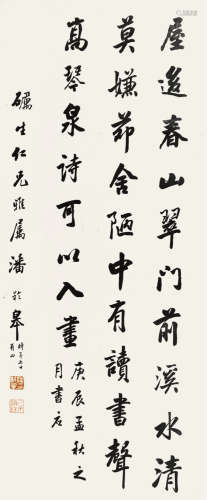 屋邊春山翠門前溪水清
莫嫌茆舍陋中有讀書聲
高琴泉詩可以入畫
庚辰孟秋之
月書后
礪生仁兄雅屬潘齡皋